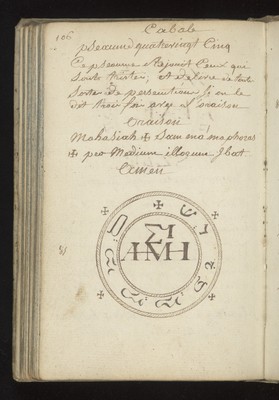 106
Cabale
pseaume quatrevingt Cinq
Ce pseaume Rejouit Ceux qui
sont tristes, et delivre de toute
sorte de persecution si on le
dit trois fois avec l'oraison
Oraison
Mahasiah ✠ Sam ma mephores
✠ per Medium illorum Ibat
Amen